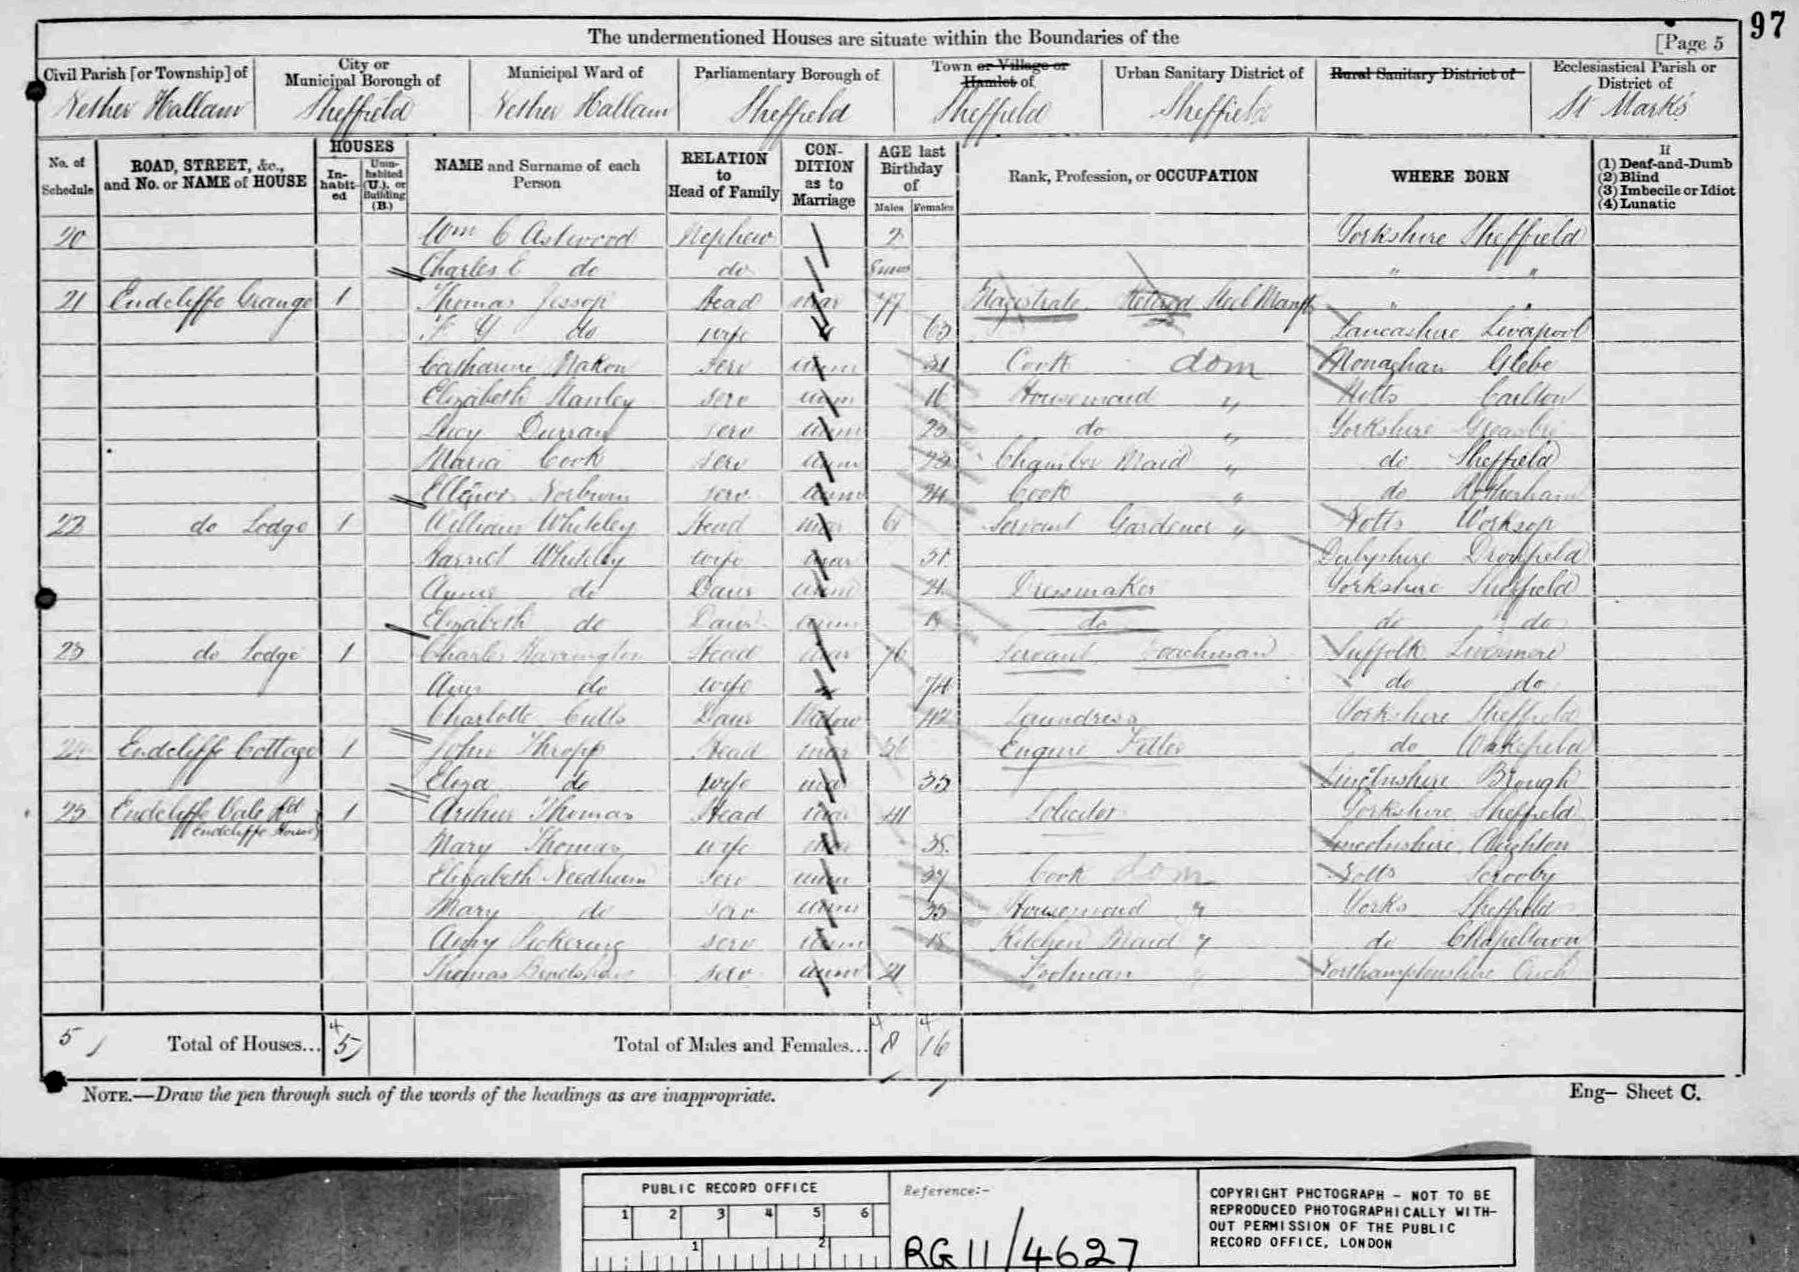 97
The undermentioned Houses are situate within the Boundaries of the
[Page 5
Civil Parish [or Township] of
Nether Hallam
City or Municipal Borough of
Sheffield
Municipal Ward of
Nether Hallam
Parliamentary Borough of
Sheffield
Town or Village or Hamlet of
Sheffield
Urban Sanitary District of
Sheffield
Rural Sanitary District of
Ecclesiastical Parish or District of
St Marks
No. of Schedule
ROAD, STREET, &c., and No. or NAME of HOUSE
HOUSES
In-habit-ed
Unin-habited (U.), or Building (B.)
NAME and Surname of each Person
RELATION to Head of Family
CON-DITION as to Marriage
AGE last Birthday of
Males Females
Rank, Profession, or OCCUPATION
WHERE BORN
If
(1) Deaf-and-Dumb
(2) Blind
(3) Imbecile or Idiot
(4) Lunatic
20 Wm C Astwood Nephew 2 Yorkshire Sheffield
Charles E do do 8 mos " "
21 Endcliffe Grange 1 Thomas Jessop Head mar 77 Magistrate Retired Steel Manfr " "
do wife 63 Lancashire Liverpool
Catharine serv unm 31 Cook dom Monaghan Glebe
Elizabeth Stanley serv unm 16 Housemaid " Notts Carlton
Lucy Durran serv unm 23 do " Yorkshire
Maria Cook serv unm 23 Chamber Maid " do Sheffield
Norburn serv unm 24 Cook " do Rotherham
22 do Lodge 1 William Whiteley Head mar 61 Servant Gardener " Notts Worksop
Harriet Whiteley wife mar 51 Derbyshire Dronfield
Annie do Daur unm 21 Dressmaker Yorkshire Sheffield
Elizabeth do Daur unm 19 do do do
23 do Lodge 1 Charles Harrington Head mar 76 Servant Coachman Suffolk Livermore
Ann do wife 74 do do
Charlotte Cutts Daur Widow 42 Laundress Yorkshire Sheffield
24 Endcliffe Cottage 1 John Thropp Head mar 36 Engine Fitter do Wakefield
Eliza do wife mar 33 Lincolnshire Brough
25 Endcliffe Vale Rd 1 Arthur Thomas Head mar 41 Solicitor Yorkshire Sheffield
(Endcliffe House)
Mary Thomas wife mar 38 Lincolnshire
Elizabeth Needham serv unm 37 Cook dom Notts Scrooby
Mary do serv unm 33 Housemaid " Yorks Sheffield
Amy Pickering serv unm 18 Kitchen Maid " do Chapeltown
Thomas Bradshaw serv unm 21 Footman " Northamptonshire
5 Total of Houses... 4 5 Total of Males and Females... 4 8 4 16
NOTE.—Draw the pen through such of the words of the headings as are inappropriate.
Eng— Sheet C.
PUBLIC RECORD OFFICE
1 2 3 4 5 6
1 2
Reference:-
RG 11/4627
COPYRIGHT PHOTOGRAPH - NOT TO BE
REPRODUCED PHOTOGRAPHICALLY WITH-
OUT PERMISSION OF THE PUBLIC
RECORD OFFICE, LONDON